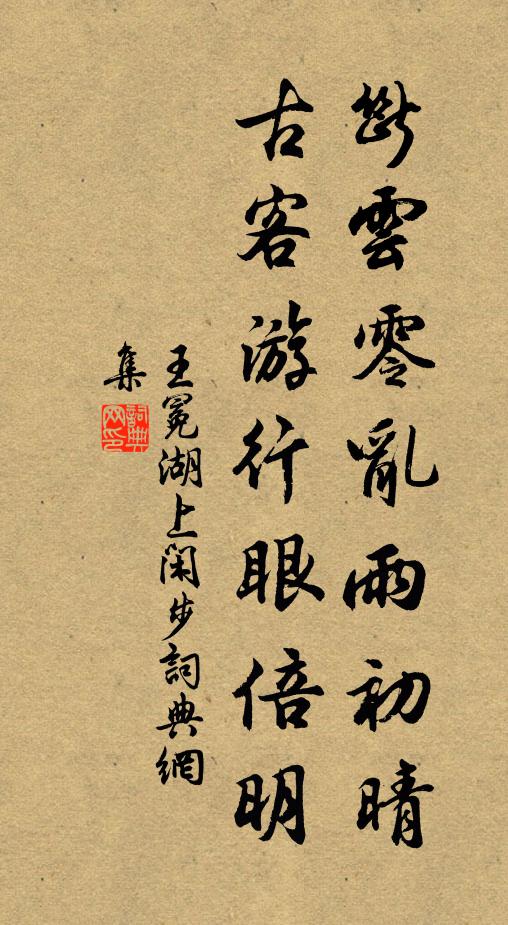 斷雲零亂雨初晴
古客游行眼倍明
王冕湖上閑步詞典網
集
詞典
网印